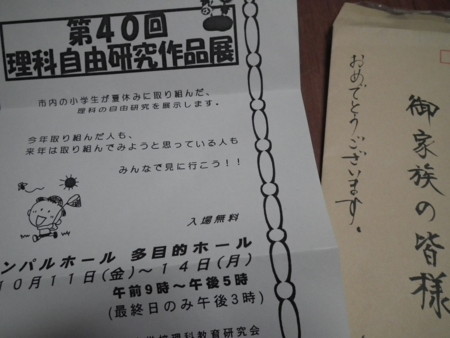 第40回
理科自由研究作品展
市内の小学生が夏休みに取り組んだ、
理科の自由研究を展示します。
今年取り組んだ人も、
来年は取り組んでみようと思っている人も
みんなで見に行こう！！
入場無料
ンパルホール 多目的ホール
10月11日(金)～14日(月)
午前9時～午後5時
(最終日のみ午後3時)
理科教育研究会
御家族の皆様
おめでとうございます。